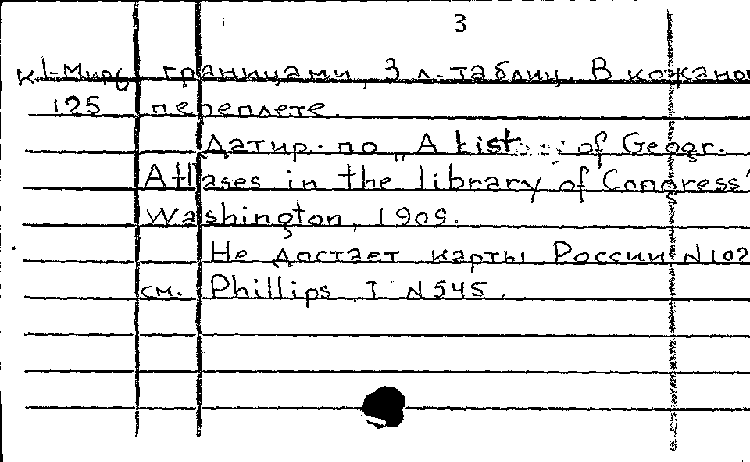 3
к1-Мир6 границами, 3 л. таблиц. В кожано
125 переплете.
Датир. по „A List of Geogr.
Atlases in the library of Congress"
Washington, 1909.
Не достает карты России N102
см. Phillips I N545.